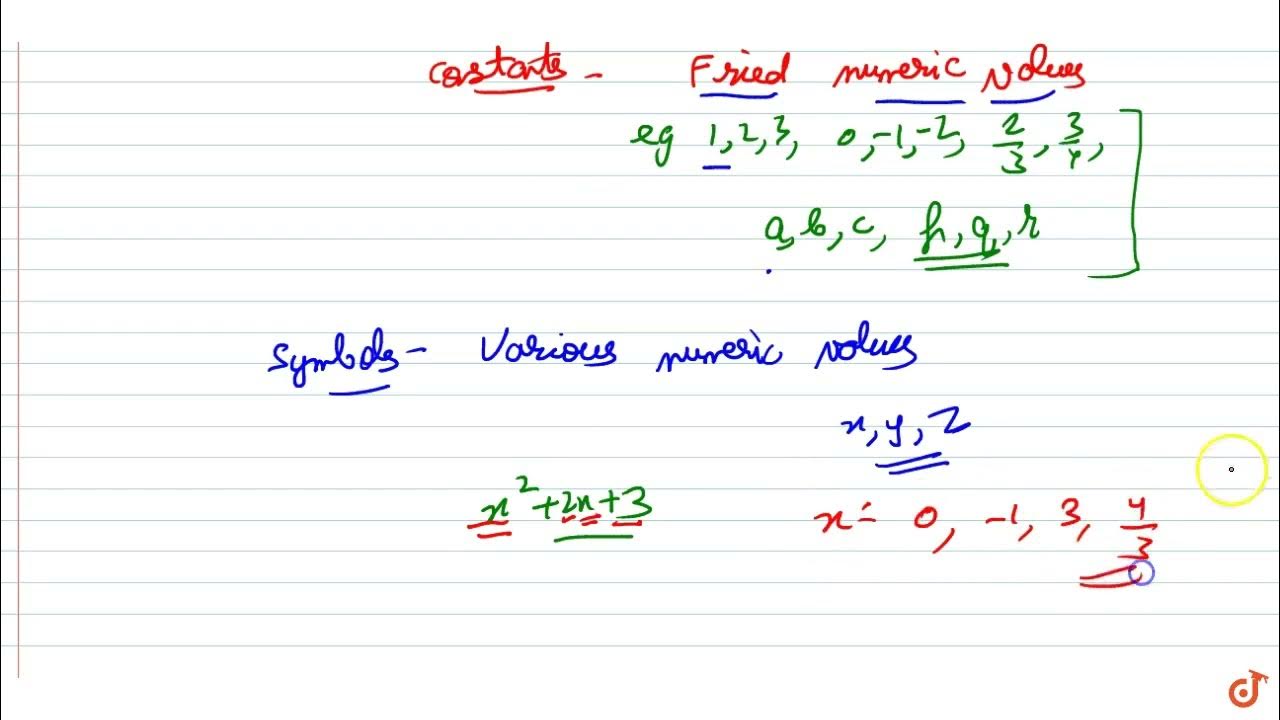 constants - Fixed numeric values
eg 1, 2, 3, 0, -1, -2, 2/3, 3/4,
a, b, c, p, q, r
Symbols - Various numeric values
x, y, z
x² + 2x + 3
x = 0, -1, 3, 4/3